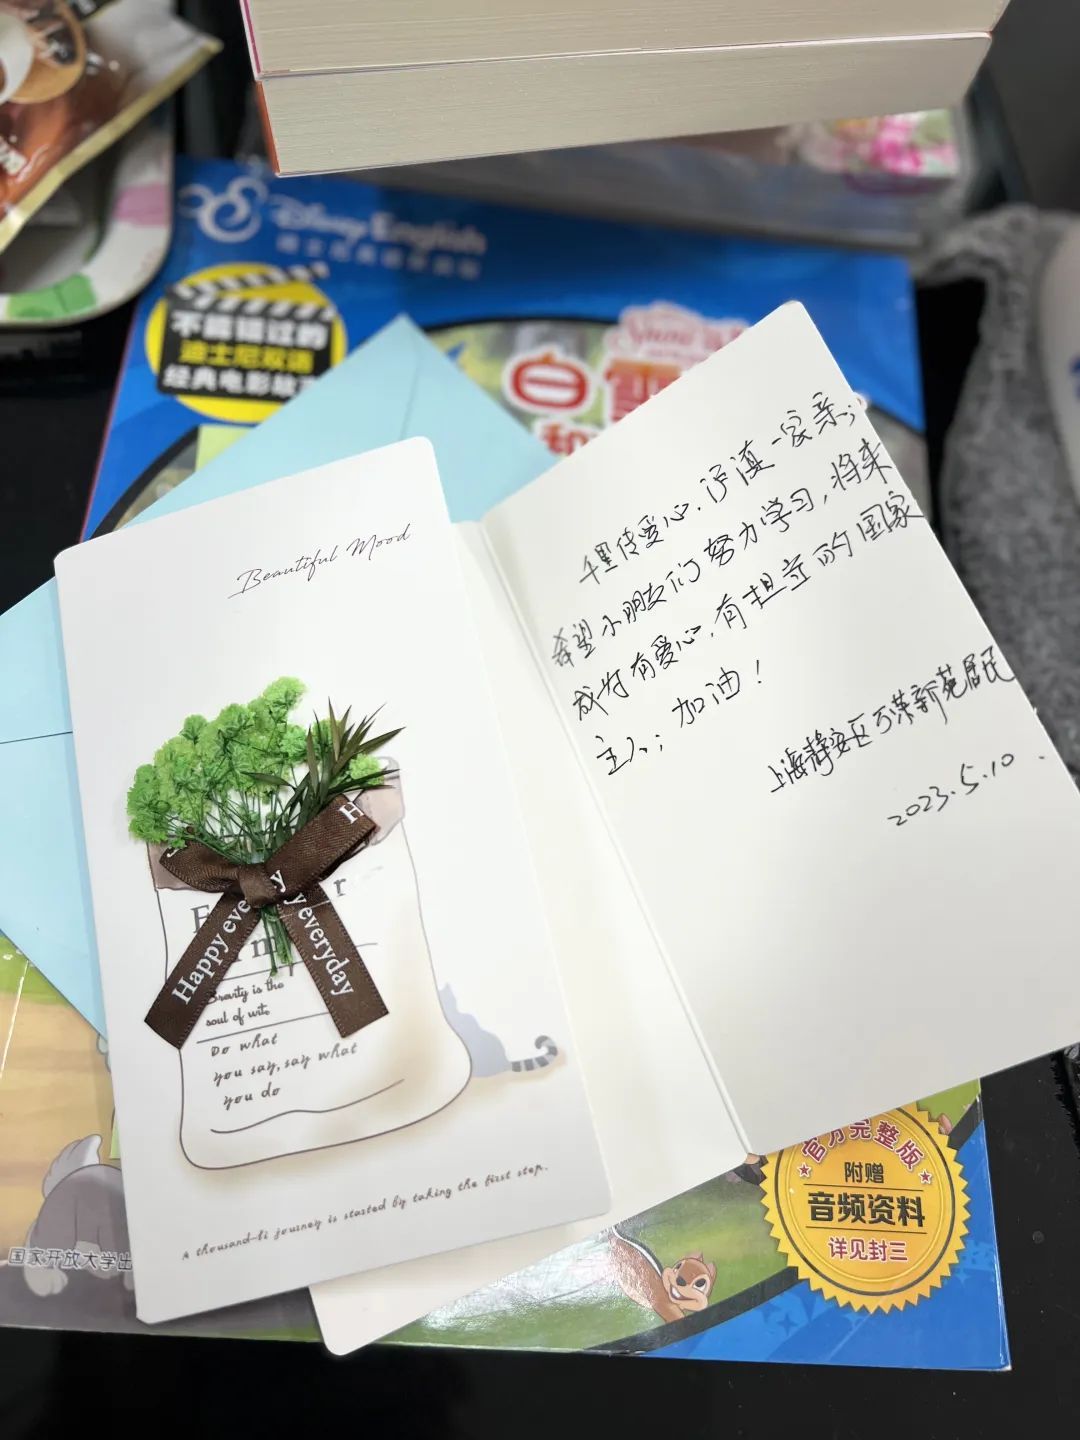 Disney English
迪士尼英语家庭版
不能错过的
迪士尼双语
经典电影故事
白雪
和
Beautiful Mood
Happy everyday
y everyday
H
Brevity is the
soul of wit.
Do what
you say, say what
you do
A thousand-li journey is started by taking the first step.
千里传爱心，沪滇一家亲；
希望小朋友们努力学习，将来
成为有爱心，有担当的国家
主人；加油！
上海静安区万荣新苑居民
2023.5.10.
官方完整版
附赠
音频资料
详见封三
国家开放大学出